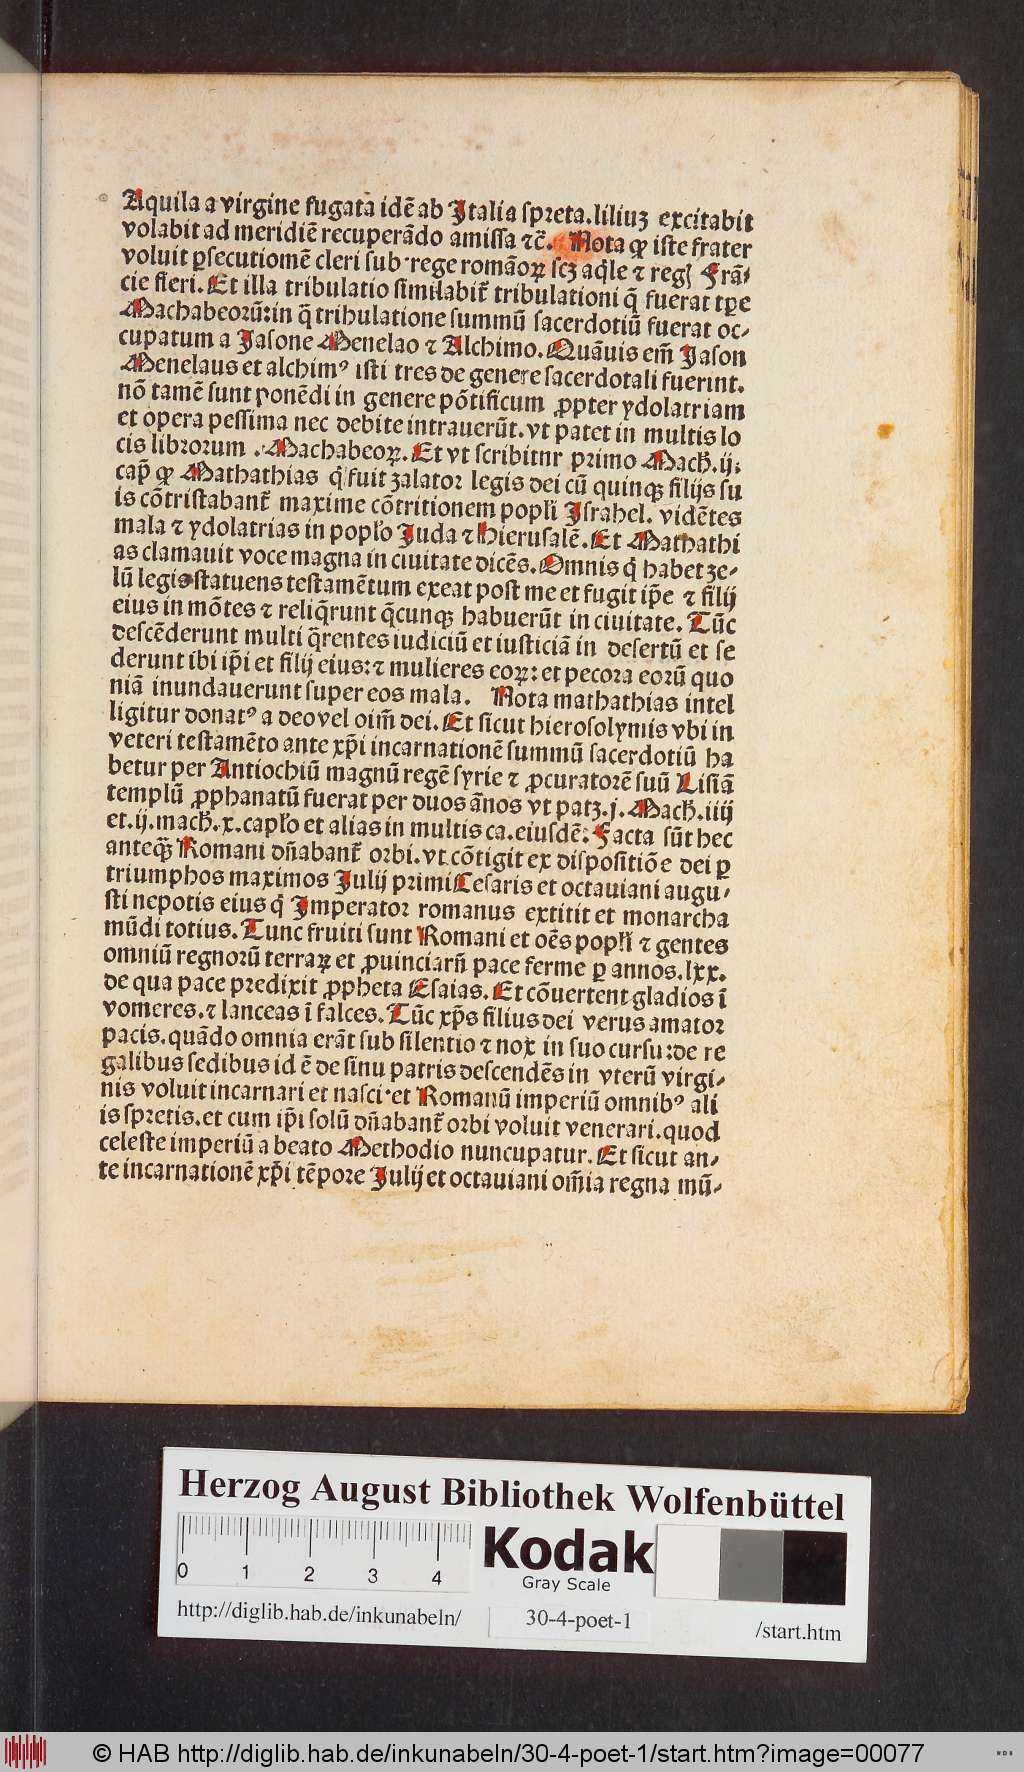 Aquila a virgine fugata idē ab Italia spreta. liliuꝫ excitabit
volabit ad meridiē recuperādo amissa ⁊c̄. Nota ꝙ iste frater
voluit ꝑsecutiomē cleri sub rege romāoꝝ scꝫ aq̇le ⁊ regꝭ Frā-
cie fieri. Et illa tribulatio similabit̄ tribulationi q̄ fuerat tꝑe
Machabeorū: in q̄ tribulatione summū sacerdotiū fuerat oc-
cupatum a Jasone Menelao ⁊ Alchimo. Quāuis em̄ Jason
Menelaus et alchimꝰ isti tres de genere sacerdotali fuerint.
nō tamē sunt ponēdi in genere pōtificum ꝓpter ydolatriam
et opera pessima nec debite intrauerūt. vt patet in multis lo
cis librorum . Machabeoꝝ. Et vt scribitnr primo Macḣ. ij.
cap̄ ꝙ Mathathias q̇ fuit zalator legis dei cū quinqꝫ filijs su
is cōtristabant̄ maxime cōtritionem popłi Israhel. vidētes
mala ⁊ ydolatrias in popło Juda ⁊ Hierusalē. Et Mathathi
as clamauit voce magna in ciuitate dicēs. Omnis q̇ habet ze-
lū legis statuens testamētum exeat post me et fugit ip̄e ⁊ filij
eius in mōtes ⁊ reliq̄runt q̄cunqꝫ habuerūt in ciuitate. Tūc
descēderunt multi q̄rentes iudiciū et iusticiā in desertū et se
derunt ibi ip̄i et filij eius: ⁊ mulieres eoꝝ: et pecora eorū quo
niā inundauerunt super eos mala. Nota mathathias intel
ligitur donatꝰ a deo vel oim̄ dei. Et sicut hierosolymis vbi in
veteri testamēto ante xp̄i incarnationē summū sacerdotiū ha
betur per Antiochiū magnū regē syrie ⁊ ꝓcuratorē suū Lisiā
templū ꝓphanatū fuerat per duos ānos vt patꝫ. j. Macḣ. iiij
et. ij. macḣ. x. capło et alias in multis ca. eiusdē: Facta sūt hec
anteqꝫ̄ Romani dn̄abant̄ orbi. vt cōtigit ex dispositiōe dei ꝑ
triumphos maximos Julij primi Cesaris et octauiani augu-
sti nepotis eius q̇ Imperator romanus extitit et monarcha
mūdi totius. Tunc fruiti sunt Romani et oēs popłi ⁊ gentes
omniū regnorū terraꝝ et ꝓuinciarū pace ferme ꝑ annos. lxx.
de qua pace predixit ꝓpheta Esaias. Et cōuertent gladios ī
vomeres. ⁊ lanceas ī falces. Tūc xp̄s filius dei verus amator
pacis. quādo omnia erāt sub silentio ⁊ nox in suo cursu: de re
galibus sedibus id ē de sinu patris descendēs in vterū virgi-
nis voluit incarnari et nasci· et Romanū imperiū omnibꝰ ali
is spretis. et cum ip̄i solū dn̄abant̄ orbi voluit venerari. quod
celeste imperiū a beato Methodio nuncupatur. Et sicut an-
te incarnationē xp̄i tēpore Julij et octauiani om̄ia regna mū-
Herzog August Bibliothek Wolfenbüttel
0 1 2 3 4
Kodak
Gray Scale
http://diglib.hab.de/inkunabeln/ 30-4-poet-1 /start.htm
© HAB http://diglib.hab.de/inkunabeln/30-4-poet-1/start.htm?image=00077